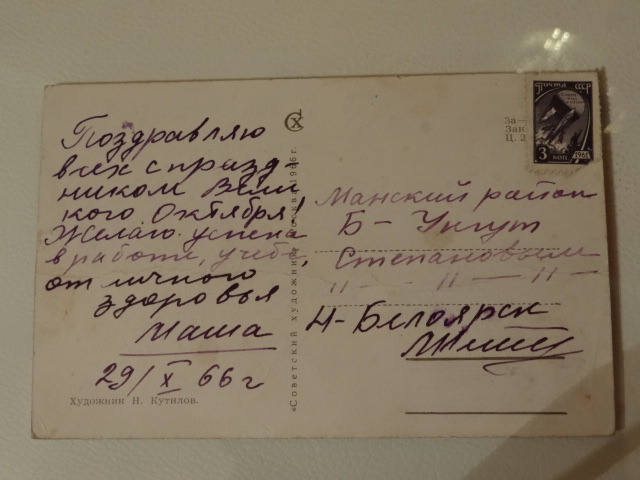 Поздравляю
всех с празд
ником Вели
кого Октября!
Желаю успеха
в работе, учебе,
отличного
здоровья
Маша
29/X 66 г
Художник Н. Кутилов.
«Советский художник» 1966г.
За
Зак
Ц. 2
ПОЧТА СССР
3 КОП
1961
Манский район
Б - Унгут
Степановым
" - " - " - " -
Н - Белоярск